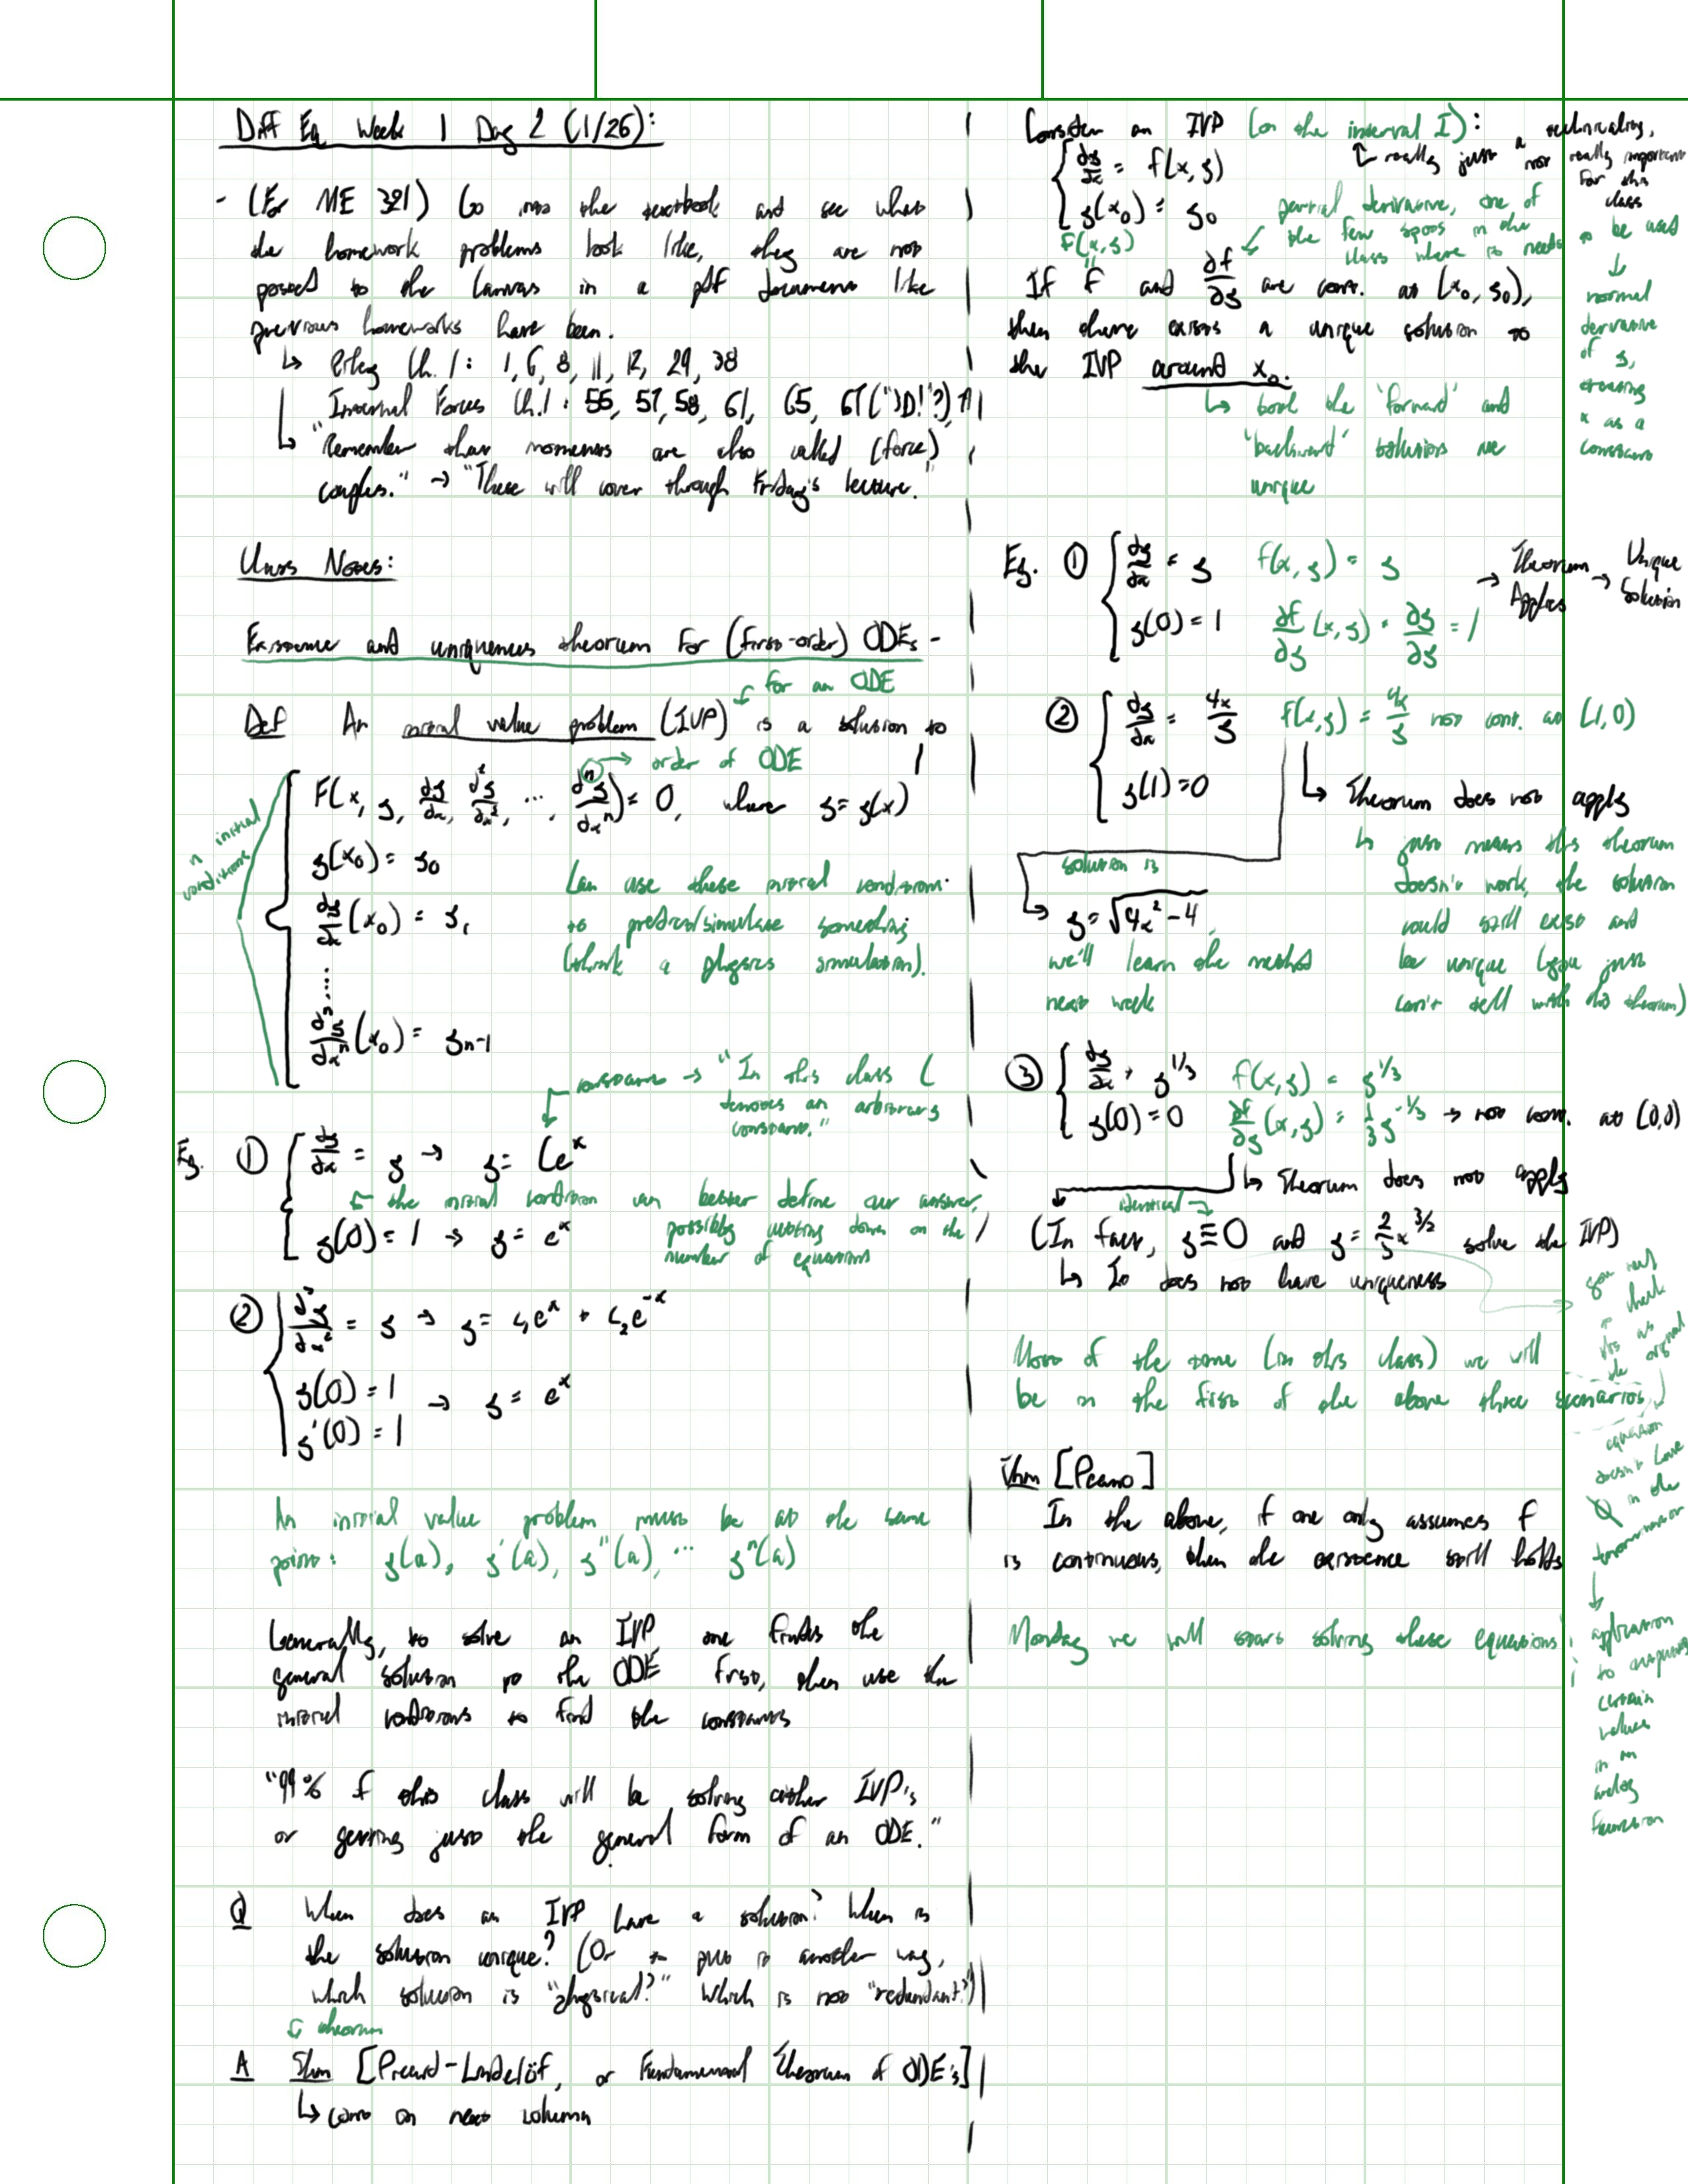 Diff Eq Week 1 Day 2 (1/26):
- (For ME 321) Go into the textbook and see what
the homework problems look like, they are not
posted to the Canvas in a pdf document like
previous homeworks have been.
↳ Riley Ch. 1: 1, 6, 8, 11, 12, 29, 38
Internal Forces Ch.1: 55, 57, 58, 61, 65, 67 ("3D!"?)
↳ "Remember that moments are also called (force)
couples." → "These will cover through Friday's lecture."
Class Notes:
Existence and uniqueness theorum for (first-order) ODEs -
↙ for an ODE
Def An initial value problem (IVP) is a solution to
→ order of ODE
F(x, y, dy/dx, d²y/dx², ..., dⁿy/dxⁿ) = 0, where y = y(x)
n initial
conditions
y(x₀) = y₀
dy/dx (x₀) = y₁
....
dⁿy/dxⁿ (x₀) = yn-1
Can use these initial conditions
to predict/simulate something
(think a physics simulation).
constant → "In this class C
denotes an arbitrary
constant."
Eg. ① dy/dx = y → y = Ceˣ
← the initial condition can better define our answer,
possibly cutting down on the
number of equations
y(0) = 1 → y = eˣ
② d²y/dx² = y → y = c₁eˣ + c₂e⁻ˣ
y(0) = 1
y'(0) = 1 → y = eˣ
An initial value problem must be at the same
point: y(a), y'(a), y''(a), ... yⁿ(a)
Generally, to solve an IVP, one finds the
general solution to the ODE first, then use the
initial conditions to find the constants
"99% of this class will be solving either IVP's
or getting just the general form of an ODE."
Q When does an IVP have a solution? When is
the solution unique? (Or to put it another way,
which solution is "physical?" Which is not "redundant?")
↙ theorum
A Thm [Picard-Lindelöf, or Fundamental Theorum of ODE's]
↳ cont on next column
Consider an IVP (on the interval I):
↑ really just a technicality,
not really important
for this
class
dy/dx = f(x, y)
y(x₀) = y₀
partial derivative, one of
the few spots in the
class where it needs to be used
↓
normal
derivative
of y,
treating
x as a
constant
f(x, y)
If f and ∂f/∂y are cont. at (x₀, y₀),
then there exists a unique solution to
the IVP around x₀.
↳ both the 'forward' and
'backward' solutions are
unique
Eg. ① dy/dx = y f(x, y) = y
y(0) = 1 ∂f/∂y (x, y) = ∂y/∂y = 1
→ Theorum Applies → Unique Solution
② dy/dx = 4x/y f(x, y) = 4x/y not cont. at (1, 0)
y(1) = 0
↳ Theorum does not apply
↳ just means this theorum
doesn't work, the solution
could still exist and
be unique (you just
can't tell with this theorum)
solution is
→ y = √4x² - 4
we'll learn the method
next week
③ dy/dx = y^1/3 f(x, y) = y^1/3
y(0) = 0 ∂f/∂y (x, y) = 1/3 y^-1/3 → not cont. at (0, 0)
↳ Theorum does not apply
identical →
(In fact, y ≡ 0 and y = 2/3 x^3/2 solve the IVP)
↳ It does not have uniqueness
you must
check
this as
the original
equation
doesn't have
in the
↓
application
to
certain
values
in an
analog
function
Most of the time (in this class) we will
be in the first of the above three scenarios
Thm [Peano]
In the above, if one only assumes f
is continuous, then the existence still holds
Monday we will start solving these equations